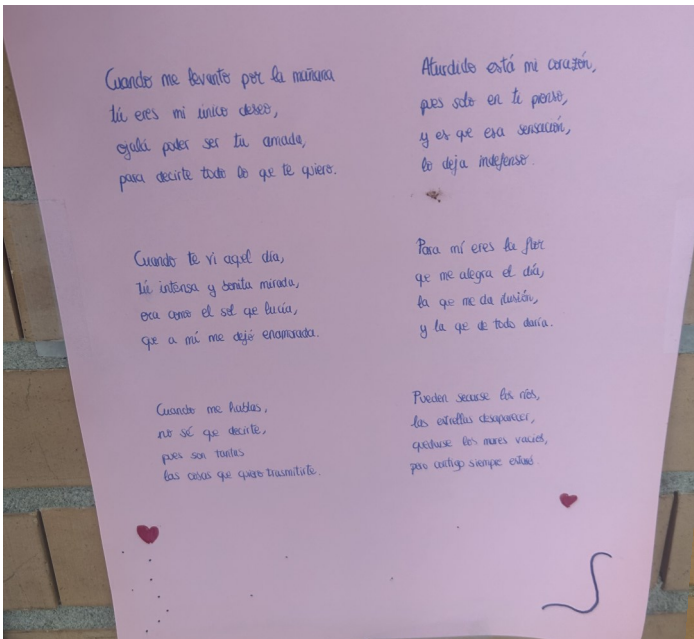 Cuando me levanto por la mañana
tú eres mi único deseo,
ojalá poder ser tu amada,
para decirte todo lo que te quiero.
Cuando te vi aqel día,
tú intensa y bonita mirada,
era como el sol qe lucía,
qe a mí me dejó enamorada.
Cuando me hablas,
no sé qe decirte,
pues son tantas
las cosas que quiero trasmitirte.
Aturdido está mi corazón,
pues solo en ti pienso,
y es que esa sensación,
lo deja indefenso.
Para mí eres la flor
qe me alegra el día,
la qe me da ilusión,
y la qe de todo daría.
Pueden secarse los ríos,
las estrellas desaparecer,
quedarse los mares vacíos,
pero contigo siempre estaré.